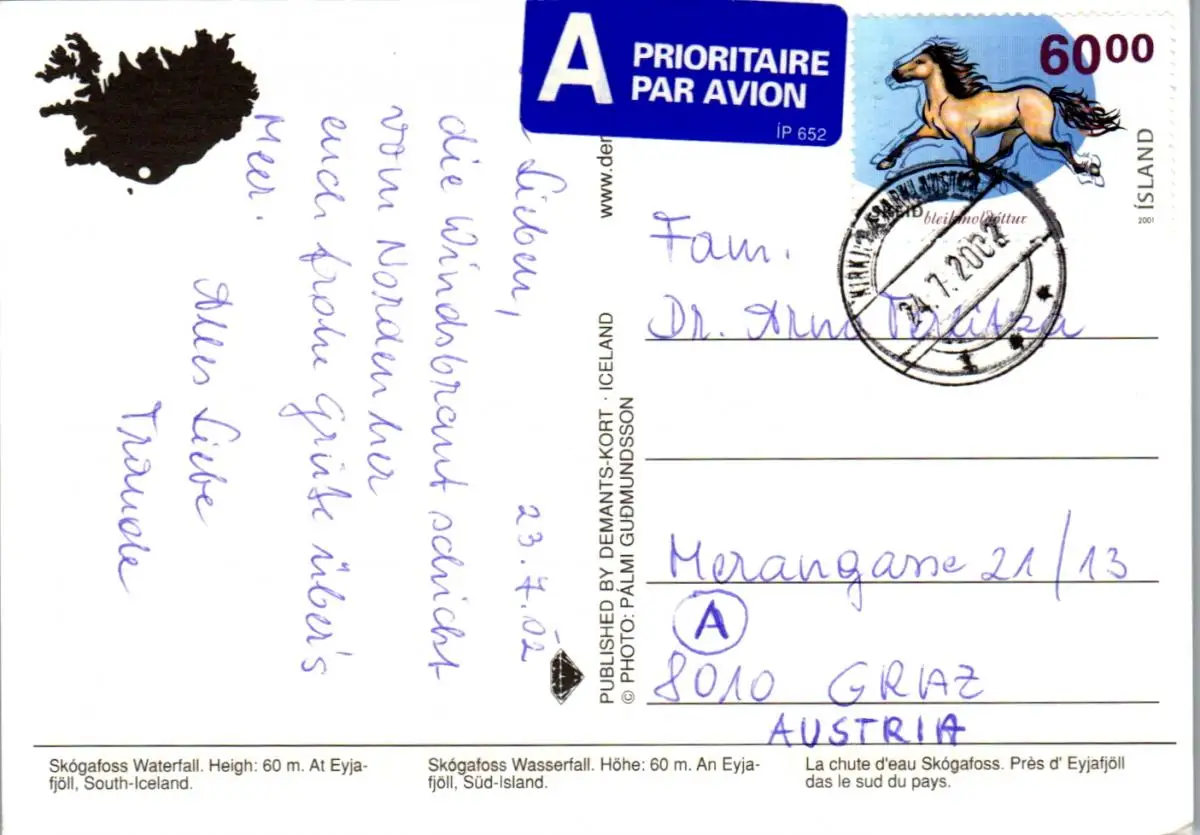 A PRIORITAIRE
PAR AVION
ÍP 652
6000
ÍSLAND
2001
24.7.2002
1
Lieben, 23.7.02
die Windsbraut schickt
vom Norden her
euch frohe Grüße über's
Meer.
Alles Liebe
Traude
www.der
PUBLISHED BY DEMANTS-KORT · ICELAND
© PHOTO: PÁLMI GUÐMUNDSSON
Fam.
Dr.
Merangasse 21/13
A
8010 GRAZ
AUSTRIA
Skógafoss Waterfall. Heigh: 60 m. At Eyja-
fjöll, South-Iceland.
Skógafoss Wasserfall. Höhe: 60 m. An Eyja-
fjöll, Süd-Island.
La chute d'eau Skógafoss. Près d' Eyjafjöll
das le sud du pays.